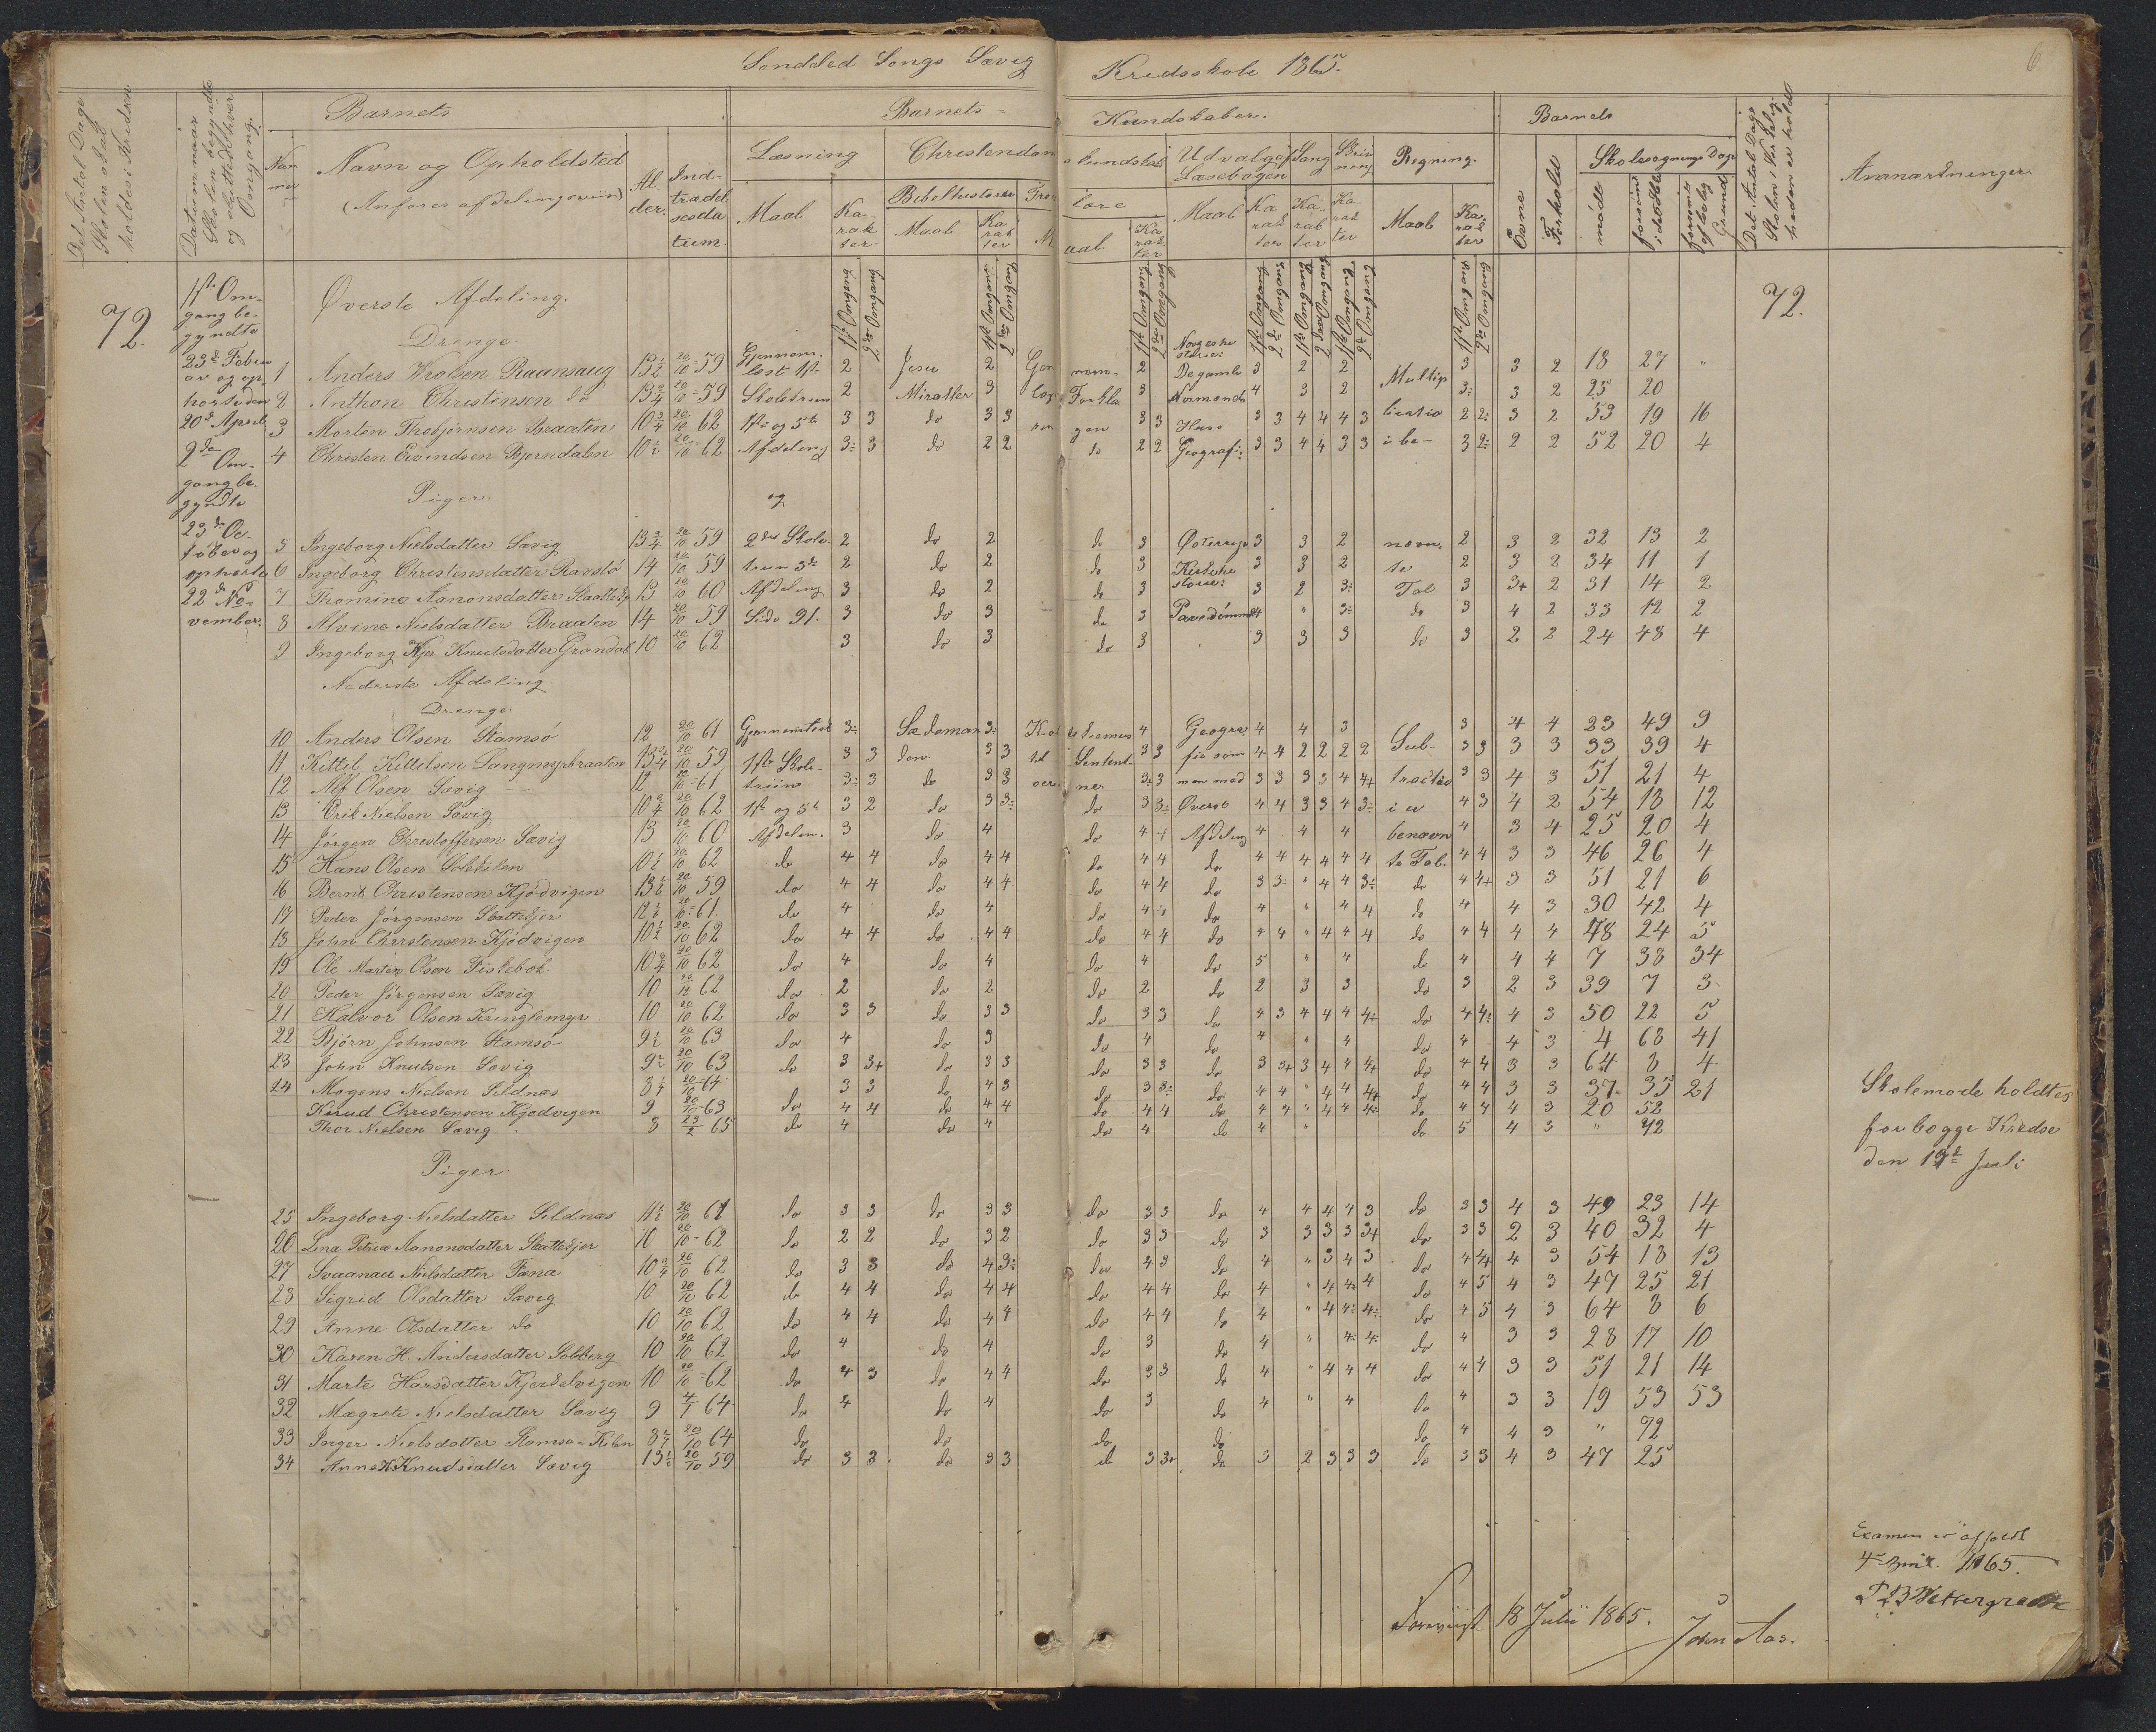 Sondeled Sogns Søvig Kredsskole 1865.
6
Det Antal Dage Skolen skal holdes i Kredsen.
Datum naar Skolen begyndte og sluttede hver Omgang.
Barnets
Nummer
Navn og Opholdsted
(Anføres afdelingsviis)
Alder.
Indtrædelsesdatum.
Barnets Kundskaber.
Læsning
Maal
Karakter.
Christendomskundskab
Bibelhistorie
Maal
Karakter
Troeslære
Maal.
Karakter
Udvalgaf Læsebogen
Maal
Karakter
Sang
Karakter
Skrivning
Karakter
Regning.
Maal
Karakter
1ste Omgang
2den Omgang
Barnets
Evne
Forhold
Skolesøgnings Dage
mødt
forsømt i det Hele
forsømt af lovlig Grund
Det Antal Dage Skolen i Virkeligheden er holdt
Anmærkninger.
72.
1ste Omgang begyndte 23de Februar og ophørte den 20de April
2den Omgang begyndte 23de October og ophørte 22de November.
72.
Øverste Afdeling.
Drenge.
1 Anders Wrolsen Raansaug 13½ 20/10 59 Gjennemlæst 1ste 2 Jesu 2 Gjennem- 2 Norgeshistorie: De gamle 3 2 2 Multip 3 3 2 18 27 "
2 Anthon Christensen do 13¾ 20/10 59 Skoletrin 2 Mirakler 3 Forkla 3 Normænds 4 3 2 3: 3 2 25 20
3 Morten Thobjørnsen Braaten 10¾ 20/10 62 1ste og 5te 3 3 do 3 3 gen 3 3 Huse 3 3 4 4 4 3 licatio 2 2: 3 2 53 19 16
4 Christen Eivindsen Bjorndalen 10½ 20/10 62 Afdeling 3: 3 do 2 2 do 2 2 Geografi: 3 3 4 4 3 3 i be- 3 2: 2 2 52 20 4
Piger. og
5 Ingeborg Nielsdatter Søvig 13¾ 20/10 59 2det Skole- 2 do 2 do 3 Østerrige 3 3 2 nævn. 2 3 2 32 13 2
6 Ingeborg Christensdatter Ravslø 14 20/10 59 trin 3de 2 do 2 do 3 Kirkehi 3 3 2 te 2 3 2 34 11 1
7 Thomine Aanonsdatter 13 20/10 60 Afdeling 3 do 2 do 3 storie: 3 2 3: Tal 3 3+ 2 31 14 2
8 Alvine Nielsdatter Braaten 14 20/10 59 Side 91. 3 do 3 do 3 Pavedømmet 4 " 3: do 3 4 2 33 12 2
9 Ingeborg Kjr Knutsdatter Grøndal 10 20/10 62 3 do 3 do 3 3 3 3 do 3 2 2 24 48 4
Nederste Afdeling.
Drenge.
10 Anders Olsen Stamsø 12 20/10 61 Gjennemlæst 3: Sædeman 3: 4 Geogra 4 4 3 3 4 4 23 49 9
11 Kittel Kittelsen Langmyrbraaten 13¾ 20/10 59 1ste Skole- 3 3 den 3 3 3 3 fie som 4 4 2 2 2 2 Sub- 3 3 3 3 33 39 4
12 Alf Olsen Søvig 12 20/10 61 triins 3: 3 do 3 3 3: 3 man med 3 3 3 3 4 4+ tractio 3 3 4 3 51 21 4
13 Erik Nielsen Søvig 10¾ 20/10 62 1ste og 5te 3 2 do 3 3: do 3 3: Øverste 4 4 3 3 4 3: i u 4 3 4 2 54 18 12
14 Jörgen Christoffersen Søvig 13 20/10 60 Afdelin. 3 do 4 do 4 4 Afdeling 4 4 4 benævn 4 3 4 25 20 4
15 Hans Olsen 10½ 20/10 62 do 4 4 do 4 4 do 4 4 do 4 4 4 4 4 4 te Tal. 4 4 3 3 46 26 4
16 Bernt Christensen Kjödvigen 13½ 20/10 59 do 4 4 do 4 4 do 4 4 do 3 3: " 4 4 3: do 4 4+ 3 3 51 21 6
17 Peder Jörgensen Skattekjer 12½ 20/10 61. do 4 do 4 do 4 4 do 4 " 4 4 do 4 4 3 30 42 4
18 John Christensen Kjödvigen 10½ 20/10 62 do 4 4 do 4 4 do 4 4 do 4 4 " 4 4 4 do 4 4 4 4 48 24 5
19 Ole Marten Olsen Fiskebæk 10¾ 20/10 62 do 4 do 4 do 4 do 5 " 4 do 4 4 4 7 38 34
20 Peder Jörgensen Søvig 10 20/10 62 do 2 do 2 do 2 do 2 3 3 do 3 2 3 39 7 3
21 Halvor Olsen Kringlemyr 10 20/10 62 do 3 3 do 3 3 do 3 3 do 4 3 4 4 4 4+ do 4 4: 4 3 50 22 5
22 Björn Johnsen Stamsö 9½ 20/10 63 do 4 do 3 do 4 do 4 " 4 do 4 4 3 4 68 41
23 John Knutsen Søvig 9½ 20/10 63 do 3 3+ do 3 3 do 3 3 do 3 3+ 3 4 4 4+ do 4 4 3 3 64 8 4
24 Mogens Nielsen Sildnæs 8¼ 20/10 64 3 3 do 4 3 do 3 3: do 4 4 " 4 4 4+ do 4 4 3 3 37 35 21
Knud Christensen Kjødvigen 9 20/10 63 do 4 4 do 4 4 do 4 4 do 4 4 " 4 4 4: do 4 4 4 3 20 52
Thor Nielsen Søvig. 8 23/2 65 do 4 do 4 do 4 do 4 " do 5 4 3 " 72
Skolemøde holdtes
for begge Kredse
den 19de Juli
Piger.
25 Ingeborg Nielsdatter Sildnæs 11½ 20/10 61 do 3 3 do 3 3 do 3 3 do 4 4 4 4 3 do 3 3 4 3 49 23 14
26 Lena Petria Aanonsdatter Skattekjer 10 20/10 62 do 2 2 do 3 2 do 3 3 do 3 3 3 3 3+ do 3 3 2 3 40 32 4
27 Svaanau Nielsdatter Fæna 10¾ 20/10 62 do 3 3 do 4 3: do 4 3 do 4 " 3 4 3 do 4 4 4 3 54 18 13
28 Sigrid Olsdatter Søvig 10 20/10 62 do 4 4 do 4 4 do 4 4 do 4 " 4 4 4 do 4 5 4 3 47 25 21
29 Anne Olsdatter do 10 20/10 62 do 4 4 do 4 4 do 4 4 do 4 " 4 4: 4: do 4 5 4 3 64 8 6
30 Karen H. Andersdatter Solberg 10 20/10 62 do 4 do 4 do 3 do 4 " 4: 4: do 4 3 3 28 17 10
31 Marte Hansdatter 10 20/10 62 do 4 3 do 4 4 do 3 3 do 4 " 4 4 4 do 4 4 3 3 51 21 14
32 Mægrete Nielsdatter Søvig 9 4/1 64 do 4 do 4 do 3 do 4 " 4 do 4 3 3 19 53 53
33 Inger Nielsdatter Stamsø-Kilen 8¼ 20/10 64 do do do do do 4 4 3 " 72
34 Anne K Knudsdatter Søvig 13½ 20/10 59 do 3 3 do 3 3 do 3 3+ do 3 2 3 3 3 do 3 3 4 3 47 25
Examen er afholdt
4de April 1865.
Foreviist 18 Julii 1865.
John Aas.